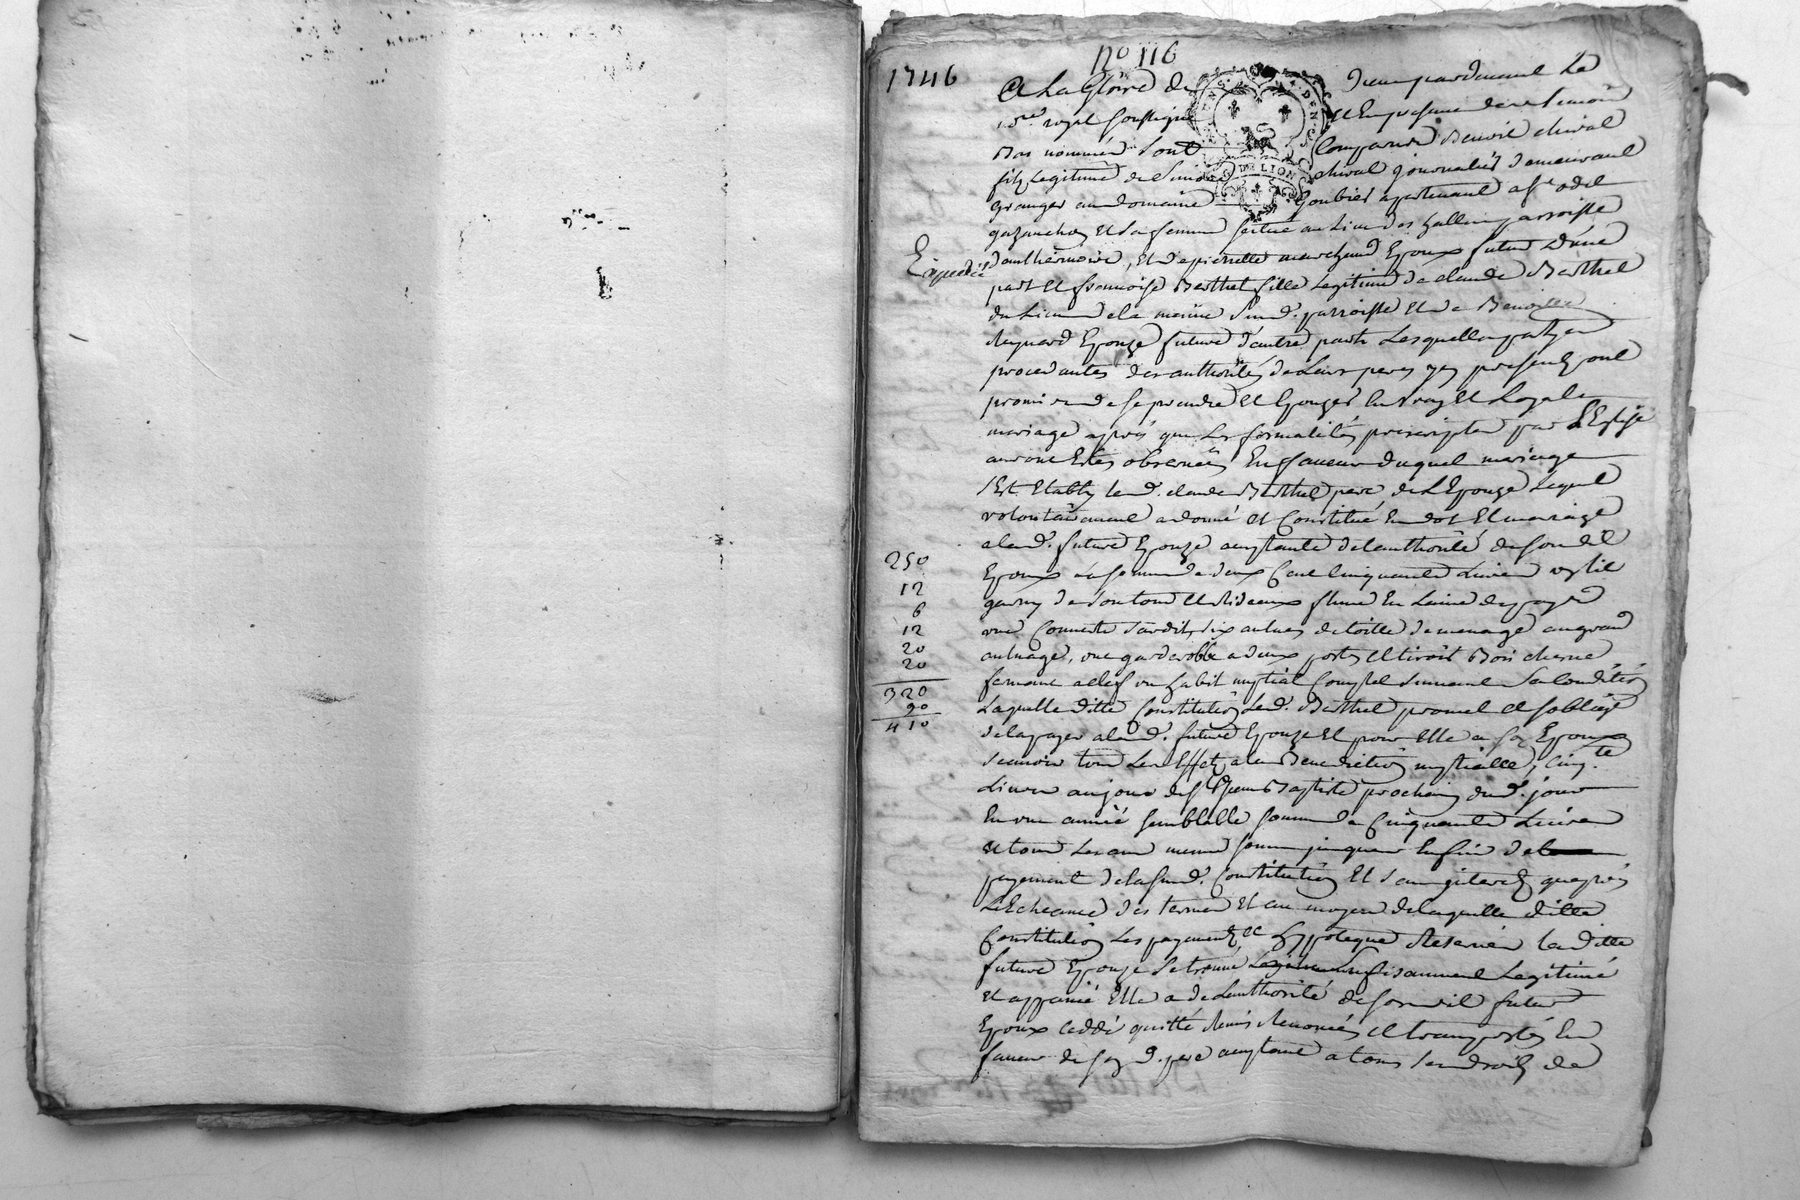 1746
no 116
A La Gloire de Dieu pardevant Le
no.re royal soussigné et En presence des temoins
Bas nommés Sont Comparus Benoit chival
fils Legitime de Simon chival journalier demeurant
Granger au domaine Goubier apartenant a s.r odil
et sa femme scitué au Lieu des hallin parroisse
Expedié
d'anthérnoire, et de pierrette marchand Epoux futur d'une
part et francoise Berthet fille Legitime de claude Berthet
du Lieu de la meme susd. parroisse et de Benoitte
Epouze future d'autre part Lesquelles parties
procedantes des authorités de Leurs peres icy presents ont
promis de se prendre et Epouzer En vray et Loyale
mariage après que Les formalités prescriptes par L'Eglise
auront Etés observées En faveur duquel mariage
s'Est Etably led. claude Berthet pere de L'Epouze Lequel
volontairement a donné et Constitué En dot et mariage
a lad. future Epouze acceptante de l'authorité de son dit
250
Epoux la somme de deux Cent Cinquante Livres un lit
12
garny de son tour et rideaux
6
une Couverte dix aulnes de toille de menage au grand
12
aulnage, une garderobbe a deux portes et tiroir Bois chesne
20
20
fermant a clef un habit nuptial Complet suivant sa Condition
320
Laquelle ditte Constitution Led. Berthet promet et s'oblige
90
410
de la payer a lad. future Epouze et pour Elle a son Epoux
scavoir tous Les Effets a la Benediction nuptialle, Cinq.te
Livres au jour de s.t Jean Baptiste prochain dud. jour
En une année semblable somme de Cinquante Livres
et tous Les ans meme somme jusques En fin de
payement de la susd. Constitution Et sans interets qu'après
L'Echeance des termes Et au moyen de laquelle ditte
Constitution Les payements et hypoteque Reservés la ditte
future Epouze se trouve suffisamment Legitimé
et appanné Elle a de L'authorité de son dit futur
Epoux Ceddé quitté Remis Renoncés et transportés En
faveur de son d. pere acceptant a tous Les droits de